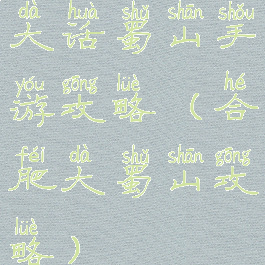 dà huà shǔ shān shǒu
大话蜀山手
yóu gōng lüè hé
游攻略（合
féi dà shǔ shān gōng
肥大蜀山攻
lüè
略）